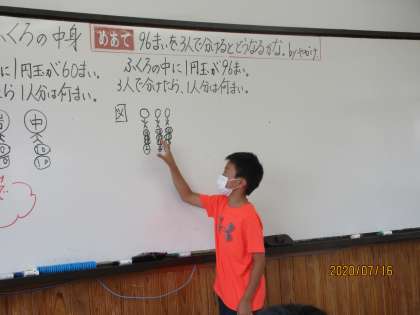 ふくろの中身
めあて 96まいを3人で分けるとどうなるかな。
に1円玉が60まい。
ら1人分は何まい。
ふくろの中に1円玉が96まい。
3人で分けたら、1人分は何まい。
図
中
10
10
10
2020/07/16